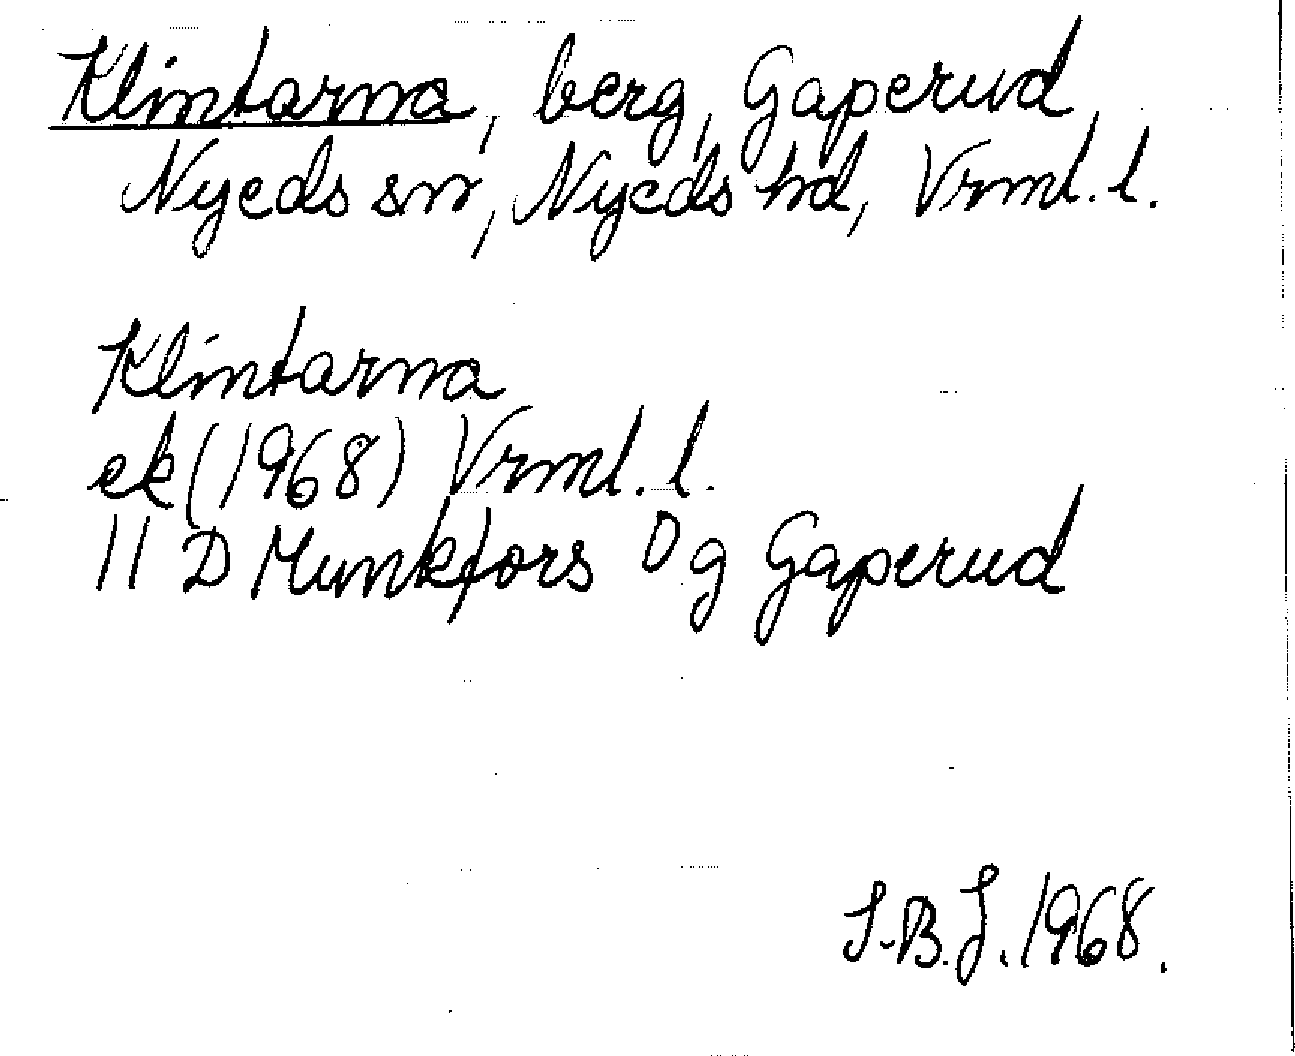 Klintarna, berg, Gaperud
Nyeds sn, Nyeds hd, Vrml. l.
Klintarna
ek (1968) Vrml. l.
11 D Munkfors 0 g Gaperud
S.B.J. 1968.